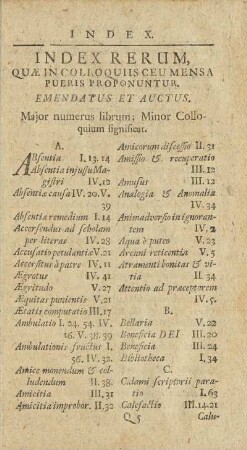 INDEX.
INDEX RERUM,
QUÆ IN COLLOQUIIS CEU MENSA
PUERIS PROPONUNTUR.
EMENDATUS ET AUCTUS.
Major numerus librum; Minor Collo-
quium significat.
A.
ABsentia I. 13. 14
Absentia injussu Ma-
gistri IV. 12
Absentiæ causa IV. 20. V.
39
Absentiæ remedium I. 14
Accersendus ad scholam
per literas IV. 28
Accusatio petulantiæ V. 21
Accersitus à patre IV. 11
Ægrotus IV. 41
Ægritudo V. 27
Æquitas punientis V. 21
Ætatis computatio III. 17
Ambulatio I. 24. 54. IV.
16. V. 38. 39
Ambulationis fructus I.
56. IV. 32.
Amice monendum & col-
ludendum II. 38.
Amicitia III. 31
Amicitia improbor. II. 32
Amicorum discessio II. 31
Amissio & recuperatio
III. 12
Amusus III. 12
Analogia & Anomalia
IV. 34
Animadversio in ignoran-
tem IV. 2
Aqua à puteo V. 23
Arcani reticentia V. 5
Atramenti bonitas & vi-
tia II. 34
Attentio ad præceptorem
IV. 5.
B.
Bellaria V. 22
Beneficia DEI III. 20
Beneficia III. 24
Bibliotheca I. 34
C.
Calami scriptorii para-
tio I. 63
Calefactio III. 14. 21
Q 5 Calu-